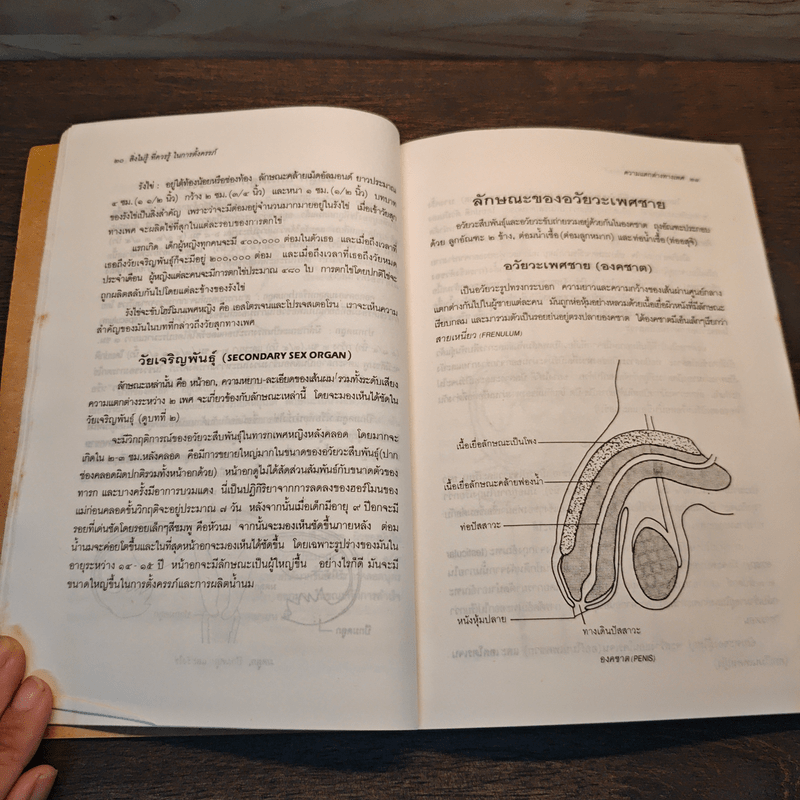 ๒๐ สิ่งไม่รู้ ที่ควรรู้ ในการตั้งครรภ์
รังไข่ : อยู่ใต้ท้องน้อยหรือช่องท้อง ลักษณะคล้ายเม็ดอัลมอนด์ ยาวประมาณ
๔ ซม. (๑ ๑/๒ นิ้ว) กว้าง ๒ ซม. (๓/๔ นิ้ว) และหนา ๑ ซม. (๑/๒ นิ้ว) บทบาท
ของรังไข่เป็นสิ่งสำคัญ เพราะว่าจะมีต่อมอยู่จำนวนมากมายอยู่ในรังไข่ เมื่อเข้าวัยสุก
ทางเพศ จะผลิตไข่ที่สุกในแต่ละรอบของการตกไข่
แรกเกิด เด็กผู้หญิงทุกคนจะมี ๔๐๐,๐๐๐ ต่อมในตัวเธอ และเมื่อถึงเวลาที่
เธอถึงวัยเจริญพันธุ์ก็จะมีอยู่ ๒๐๐,๐๐๐ ต่อม และเมื่อถึงเวลาที่เธอถึงวัยหมด
ประจำเดือน ผู้หญิงแต่ละคนจะมีการตกไข่ประมาณ ๔๘๐ ใบ การตกไข่โดยปกติไข่จะ
ถูกผลิตสลับกันไปโดยแต่ละข้างของรังไข่
รังไข่จะขับฮอร์โมนเพศหญิง คือ เอสโตรเจนและโปรเจสเตอโรน เราจะเห็นความ
สำคัญของมันในบทที่กล่าวถึงวัยสุกทางเพศ
วัยเจริญพันธุ์ (SECONDARY SEX ORGAN)
ลักษณะเหล่านั้น คือ หน้าอก, ความหยาบ-ละเอียดของเส้นผม รวมทั้งระดับเสียง
ความแตกต่างระหว่าง ๒ เพศ จะเกี่ยวข้องกับลักษณะเหล่านี้ โดยจะมองเห็นได้ชัดใน
วัยเจริญพันธุ์ (ดูบทที่ ๒)
จะมีวิกฤติการณ์ของอวัยวะสืบพันธุ์ในทารกเพศหญิงหลังคลอด โดยมากจะ
เกิดใน ๒-๓ ชม.หลังคลอด คือมีการขยายใหญ่มากในขนาดของอวัยวะสืบพันธุ์(ปาก
ช่องคลอดผิดปกติรวมทั้งหน้าอกด้วย) หน้าอกดูไม่ได้สัดส่วนสัมพันธ์กับขนาดตัวของ
ทารก และบางครั้งมีอาการบวมแดง นี่เป็นปฏิกิริยาจากการลดลงของฮอร์โมนของ
แม่ก่อนคลอดขั้นวิกฤติจะอยู่ประมาณ ๗ วัน หลังจากนั้นเมื่อเด็กมีอายุ ๙ ปีอกจะมี
รอยที่เด่นชัดโดยรอยเล็กๆสีชมพู คือหัวนม จากนั้นจะมองเห็นชัดขึ้นภายหลัง ต่อม
น้ำนมจะค่อยโตขึ้นและในที่สุดหน้าอกจะมองเห็นได้ชัดขึ้น โดยเฉพาะรูปร่างของมันใน
อายุระหว่าง ๑๔ - ๑๕ ปี หน้าอกจะมีลักษณะเป็นผู้ใหญ่ขึ้น อย่างไรก็ดี มันจะมี
ขนาดใหญ่ขึ้นในการตั้งครรภ์และการผลิตน้ำนม
ความแตกต่างทางเพศ ๒๑
ลักษณะของอวัยวะเพศชาย
อวัยวะสืบพันธุ์และอวัยวะขับถ่ายรวมอยู่ด้วยกันในองคชาต ถุงอัณฑะประกอบ
ด้วย ลูกอัณฑะ ๒ ข้าง, ต่อมน้ำเชื้อ (ต่อมลูกหมาก) และท่อน้ำเชื้อ (ท่ออสุจิ)
อวัยวะเพศชาย (องคชาต)
เป็นอวัยวะรูปทรงกระบอก ความยาวและความกว้างของเส้นผ่านศูนย์กลาง
แตกต่างกันไปในผู้ชายแต่ละคน มันถูกห่อหุ้มอย่างหลวมด้วยเนื้อเยื่อผิวหนังที่มีลักษณะ
เรียบกลม และมารวมตัวเป็นรอยย่นอยู่ตรงปลายองคชาต ใต้องคชาตมีเอ็นเล็กๆเรียกว่า
สายเหนี่ยว (FRENULUM)
เนื้อเยื่อลักษณะเป็นโพง
เนื้อเยื่อลักษณะคล้ายฟองน้ำ
ท่อปัสสาวะ
หนังหุ้มปลาย
ทางเดินปัสสาวะ
องคชาต (PENIS)